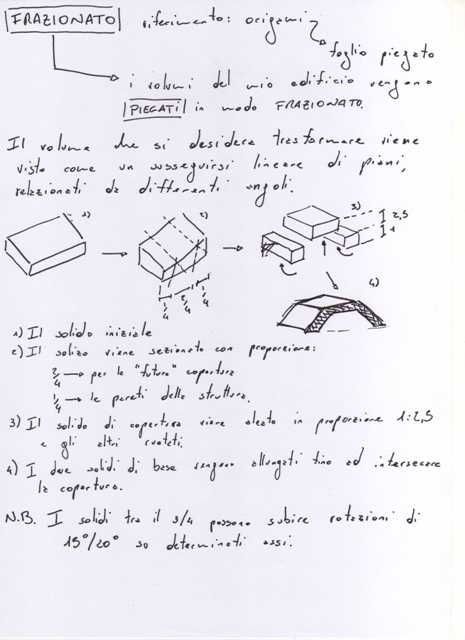 FRAZIONATO riferimento: origami
foglio piegato
i volumi del mio edificio vengono
PIEGATI in modo FRAZIONATO.
Il volume che si desidera trasformare viene
visto come un susseguirsi lineare di piani,
relazionati da differenti angoli.
1)
2)
3)
2,5
1
1/4 2/4 1/4
4)
1) Il solido iniziale
2) Il solido viene sezionato con proporzione:
2/4 → per la "futura" copertura
1/4 → le pareti della struttura.
3) Il solido di copertura viene alzato in proporzione 1:2,5
e gli altri ruotati.
4) I due solidi di base vengono allungati fino ad intersecare
la copertura.
N.B. I solidi tra il 3/4 possono subire rotazioni di
15°/20° su determinati assi.